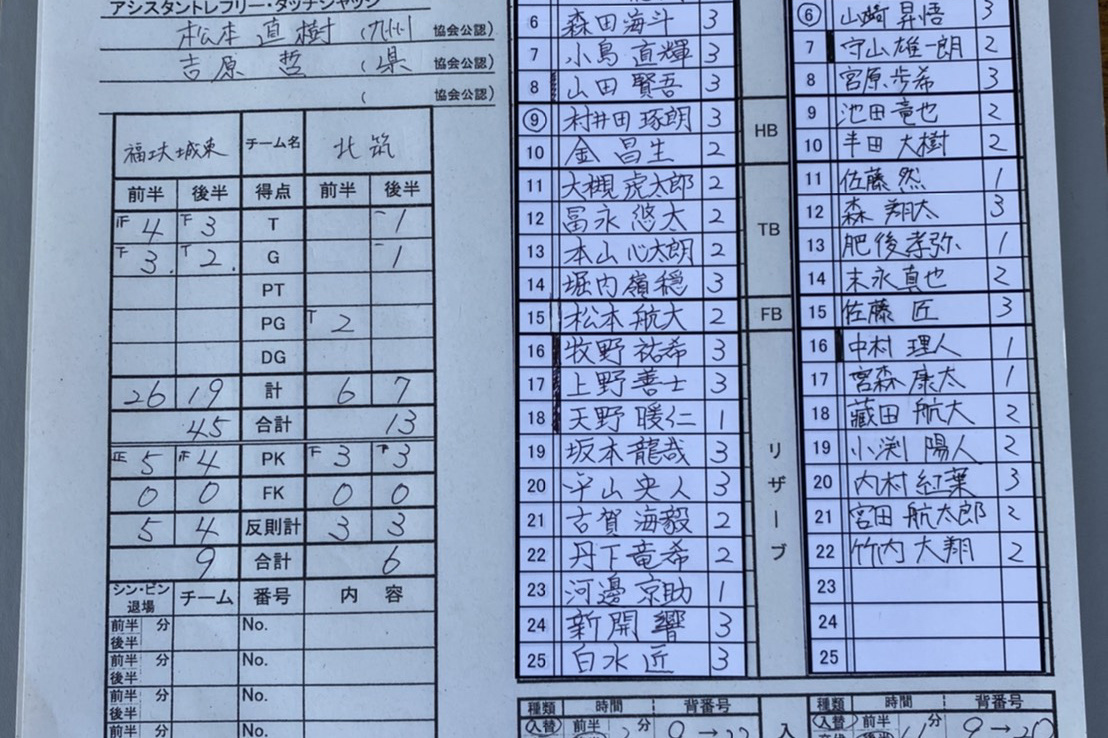 アシスタントレフリー・タッチジャッジ
松本 直樹 (九州 協会公認)
吉原 哲 (県 協会公認)
( 協会公認)
福工大城東 チーム名 北筑
前半 後半 得点 前半 後半
4 3 T 1
3 2 G 1
PT
PG 2
DG
26 19 計 6 7
45 合計 13
5 4 PK 3 3
0 0 FK 0 0
5 4 反則計 3 3
9 合計 6
シン・ビン 退場 チーム 番号 内容
前半 後半 分 No.
前半 後半 分 No.
前半 後半 分 No.
前半 分 No.
6 森田海斗 3
7 小島直輝 3
8 山田賢吾 3
9 村井田琢朗 3
10 金昌生 2
11 大槻虎太郎 2
12 冨永悠太 2
13 本山心太朗 2
14 堀内嶺穏 3
15 松本航大 2
16 牧野祐希 3
17 上野善士 3
18 天野暖仁 1
19 坂本龍哉 3
20 平山央人 3
21 古賀海毅 2
22 丹下竜希 2
23 河邊京助 1
24 新開響 3
25 白水匠 3
HB
TB
FB
リザーブ
6 山崎昇悟 3
7 守山雄一朗 2
8 宮原歩希 3
9 池田竜也 2
10 半田大樹 2
11 佐藤然 1
12 森翔太 3
13 肥後孝弥 1
14 末永真也 2
15 佐藤匠 3
16 中村理人 1
17 宮森康太 1
18 藏田航大 2
19 小渕陽人 2
20 内村紅葉 3
21 宮田航太郎 2
22 竹内大翔 2
23
24
25
種類 時間 背番号
入替 前半 分
入
種類 時間 背番号
入替 前半 分 9→20